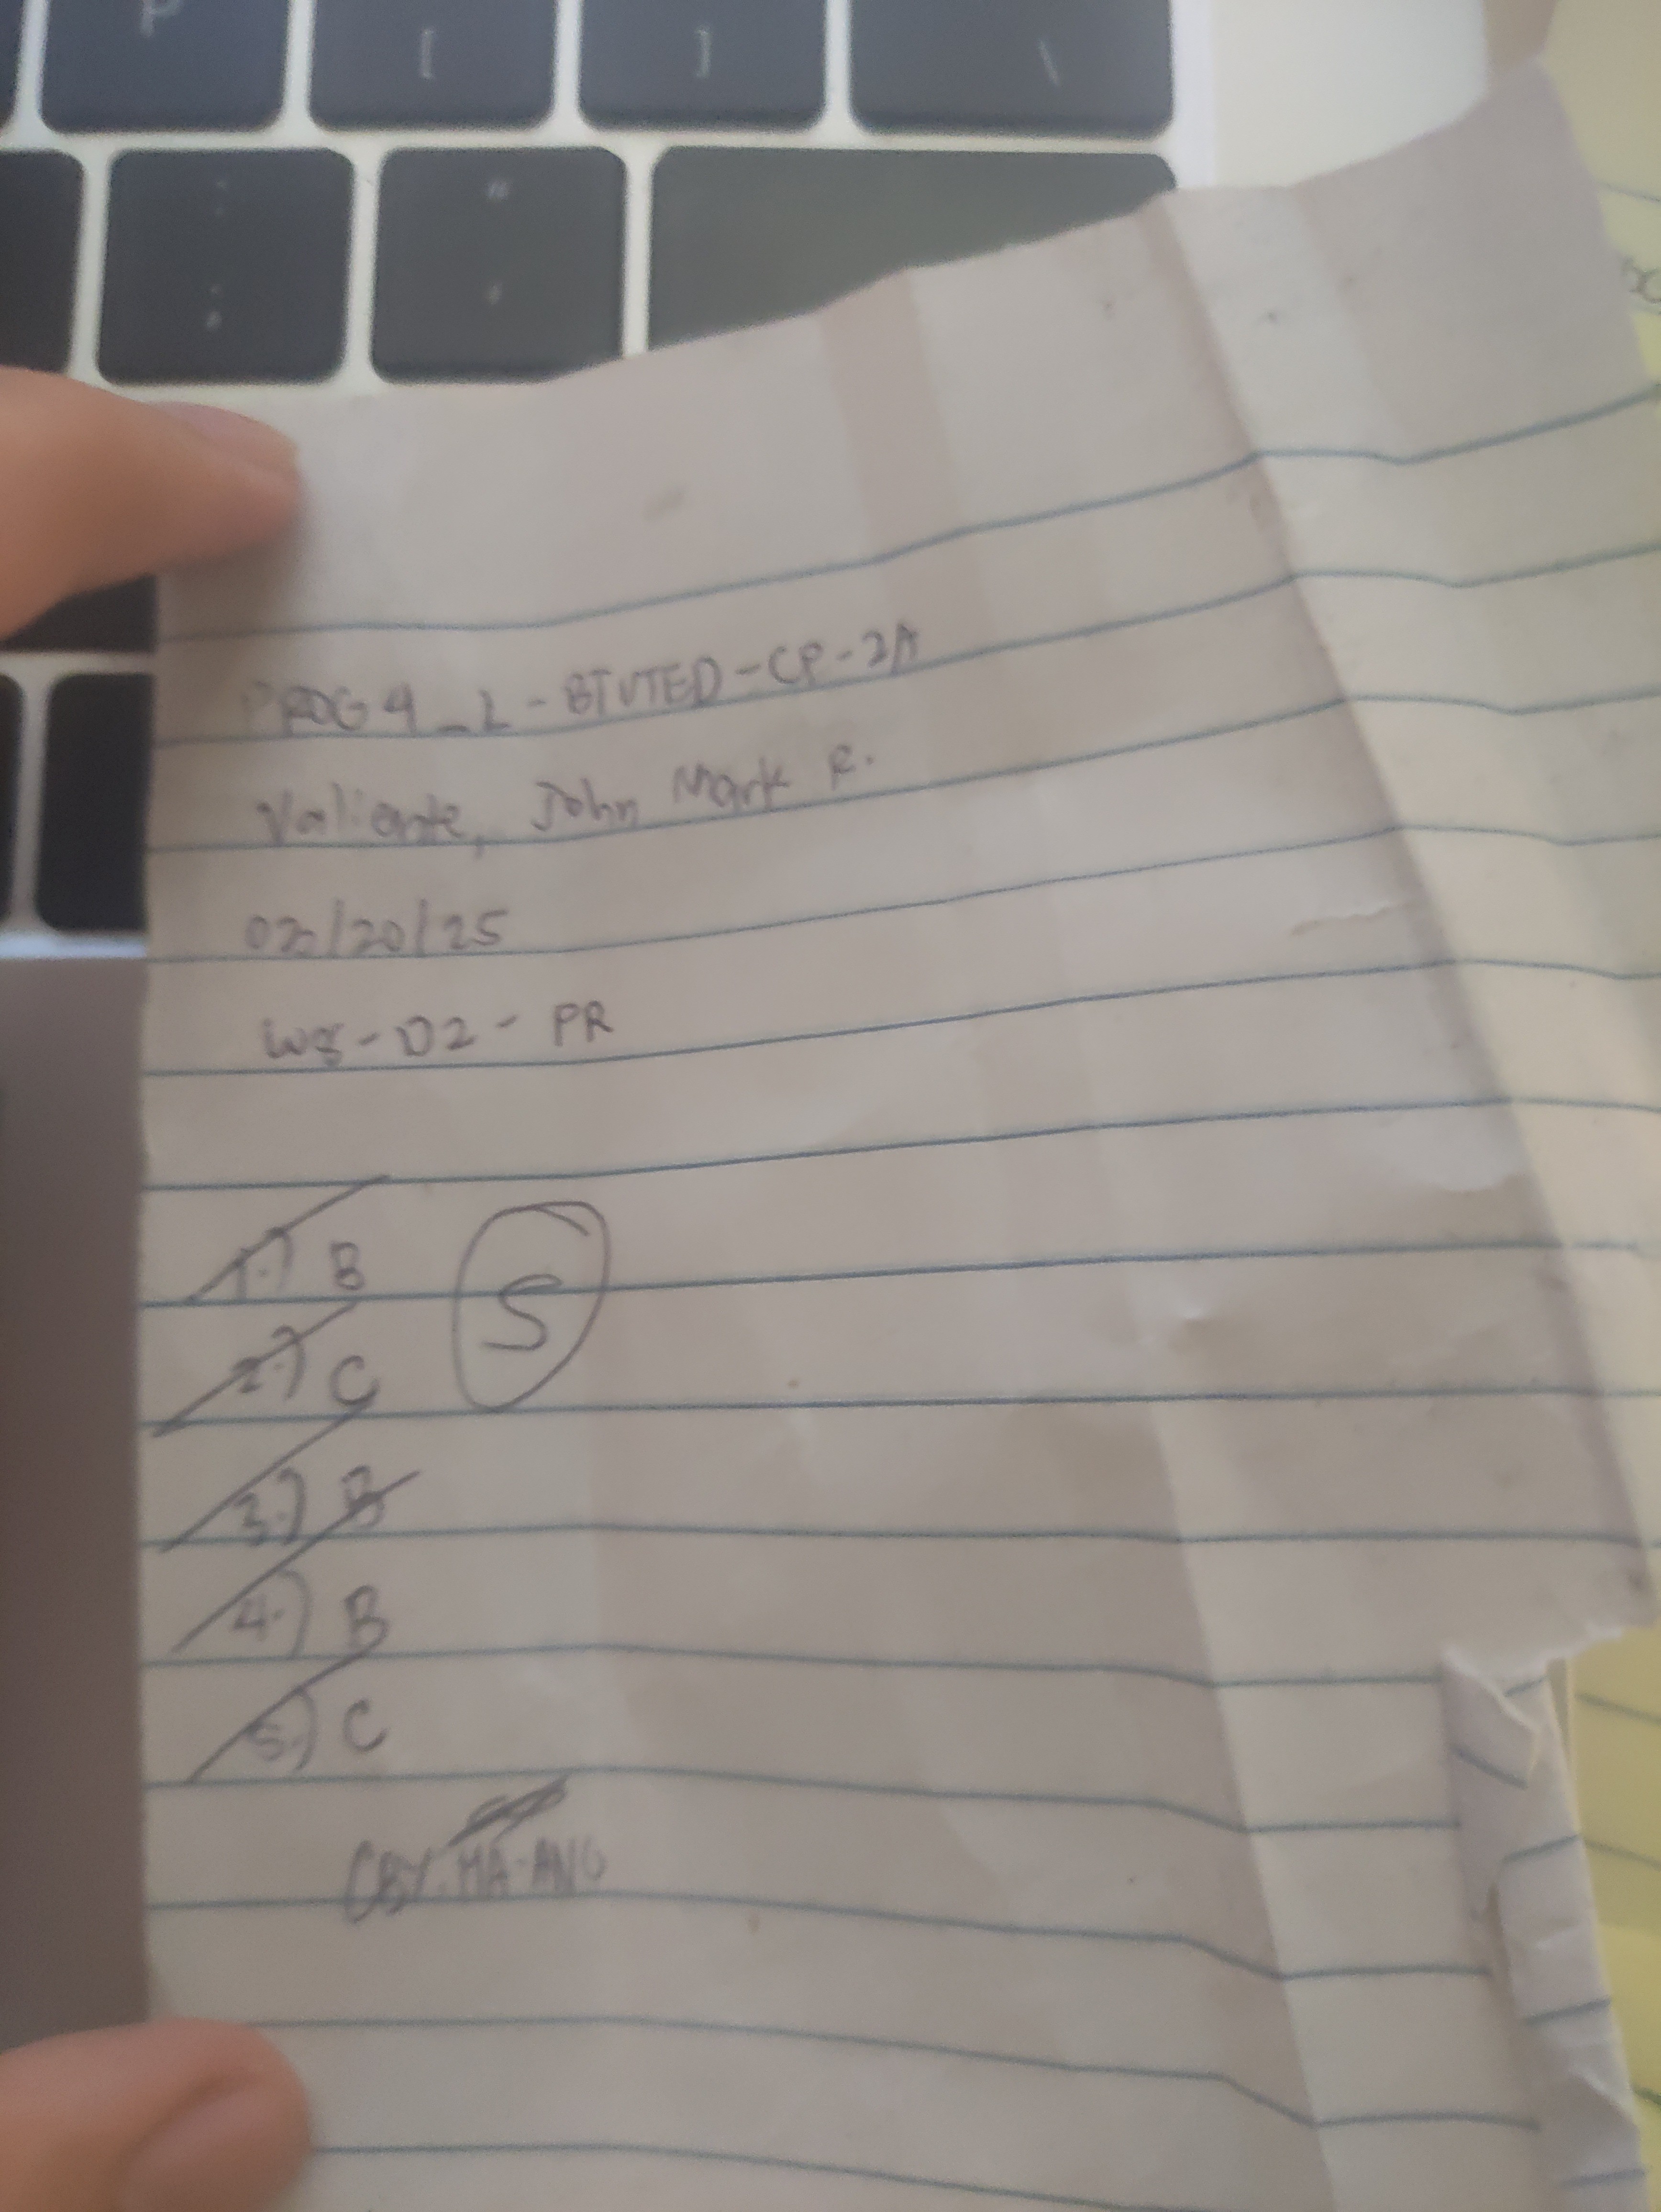 P
[
]
\
:
;
"
'
PROG4_L-BTVTED-CP-2A
Valiente, John Mark R.
02/20/25
W8-D2-PR
1.) B
5
2.) C
3.) B
4.) B
5.) C
CBY. MA-ANO